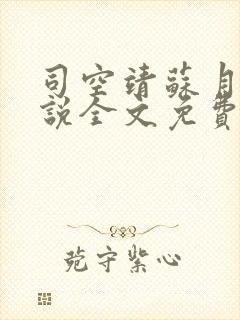 司空靖蘇月
說全文免費
菀守紫心